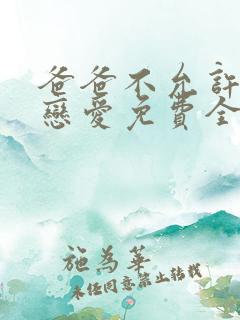 爸爸不允許
戀愛免費全
施為華
未经同意禁止转载